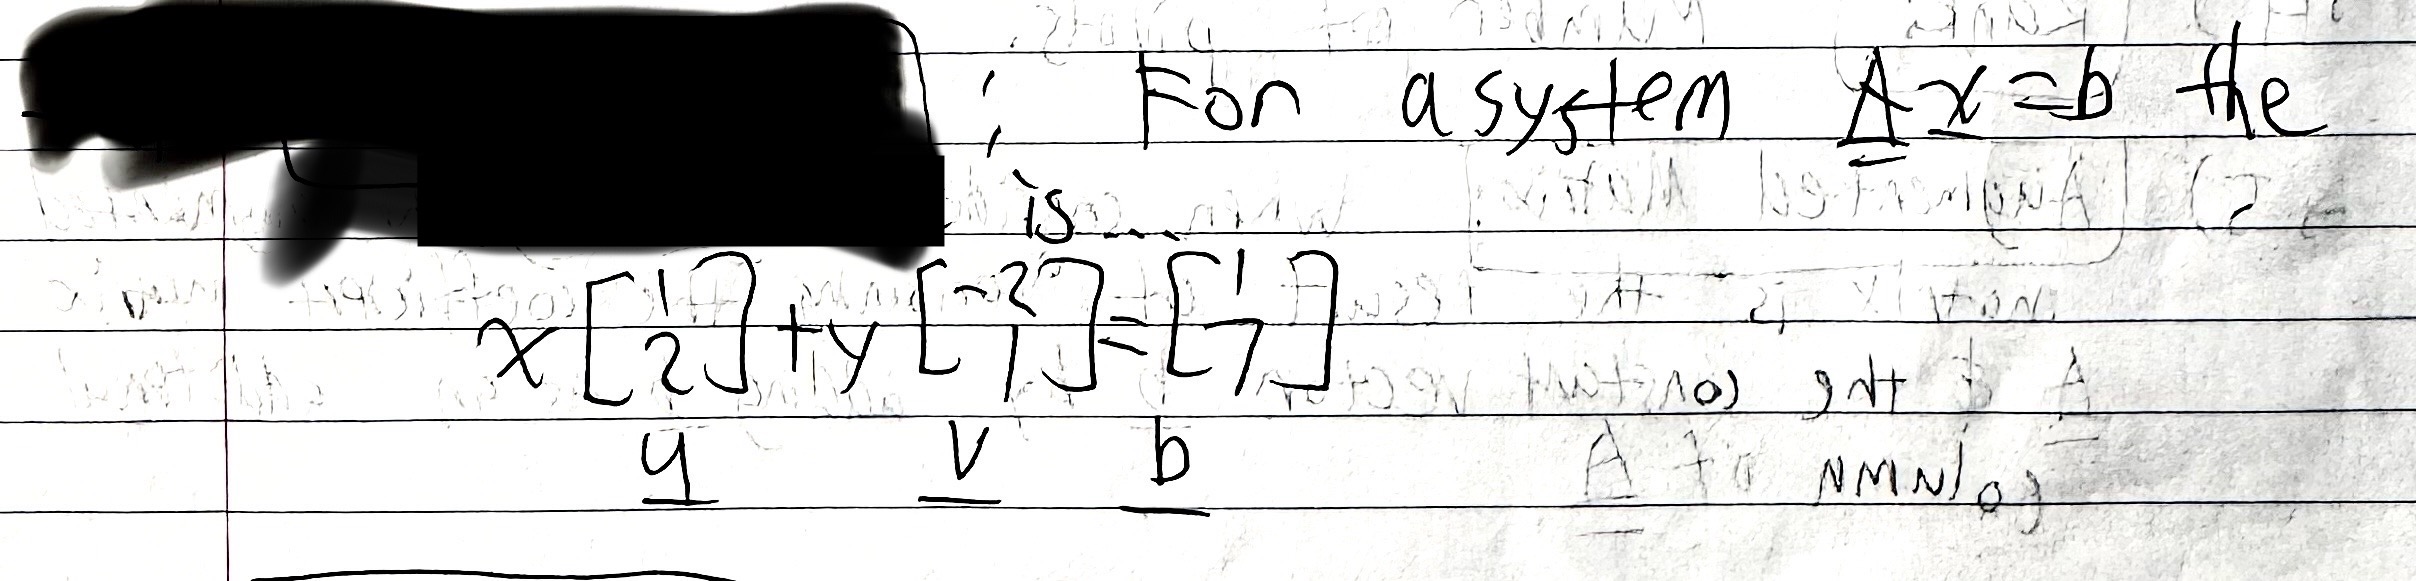 : For a system A x = b the
is ...
x [1 2] + y [-2 1] = [1 7]
u v b